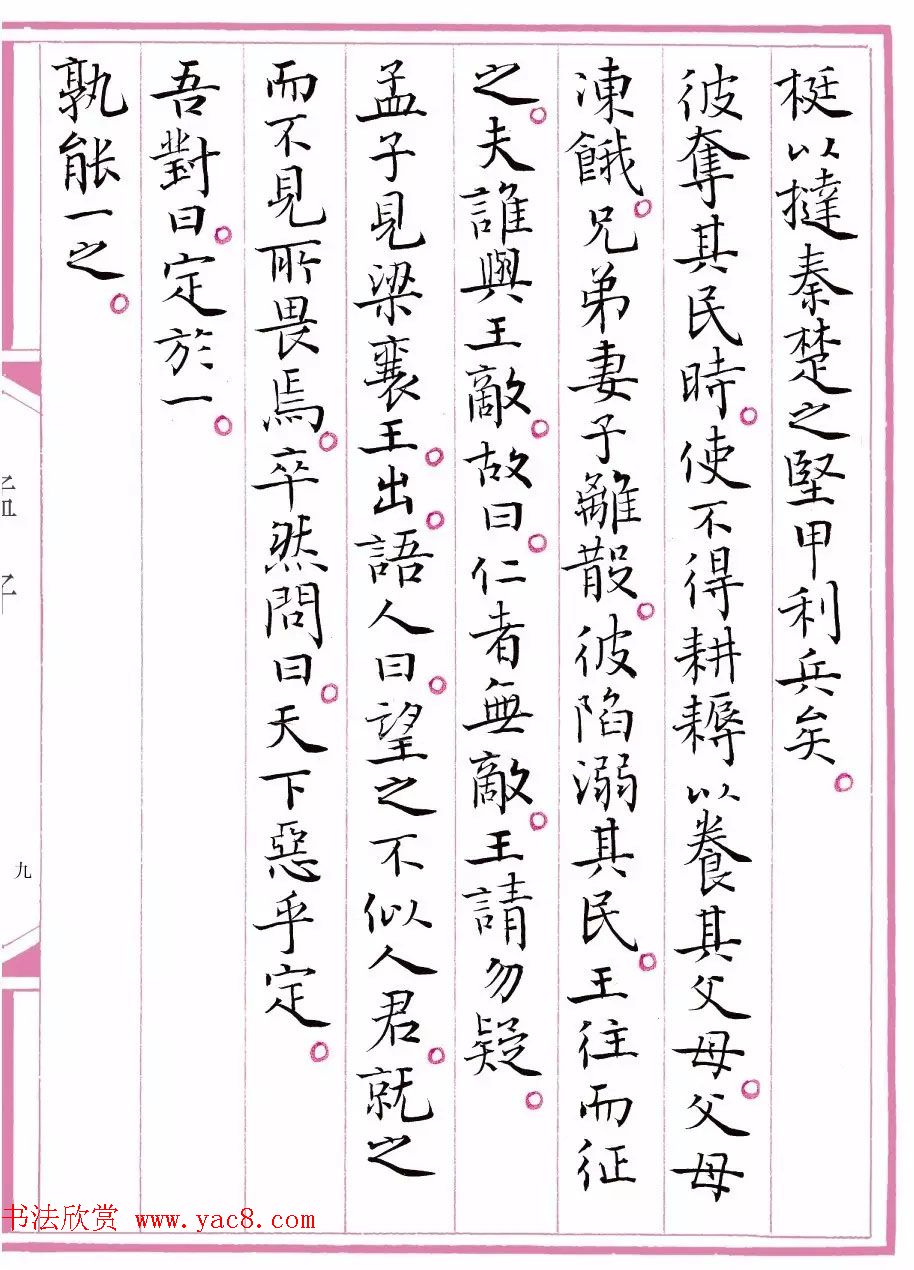 梃以撻秦楚之堅甲利兵矣。
彼奪其民時。使不得耕耨以養其父母。父母
凍餓。兄弟妻子離散。彼陷溺其民。王往而征
之。夫誰與王敵。故曰。仁者無敵。王請勿疑。
孟子見梁襄王。出。語人曰。望之不似人君。就之
而不見所畏焉。卒然問曰。天下惡乎定。
吾對曰。定於一。
孰能一之。
孟子
九
书法欣赏 www.yac8.com